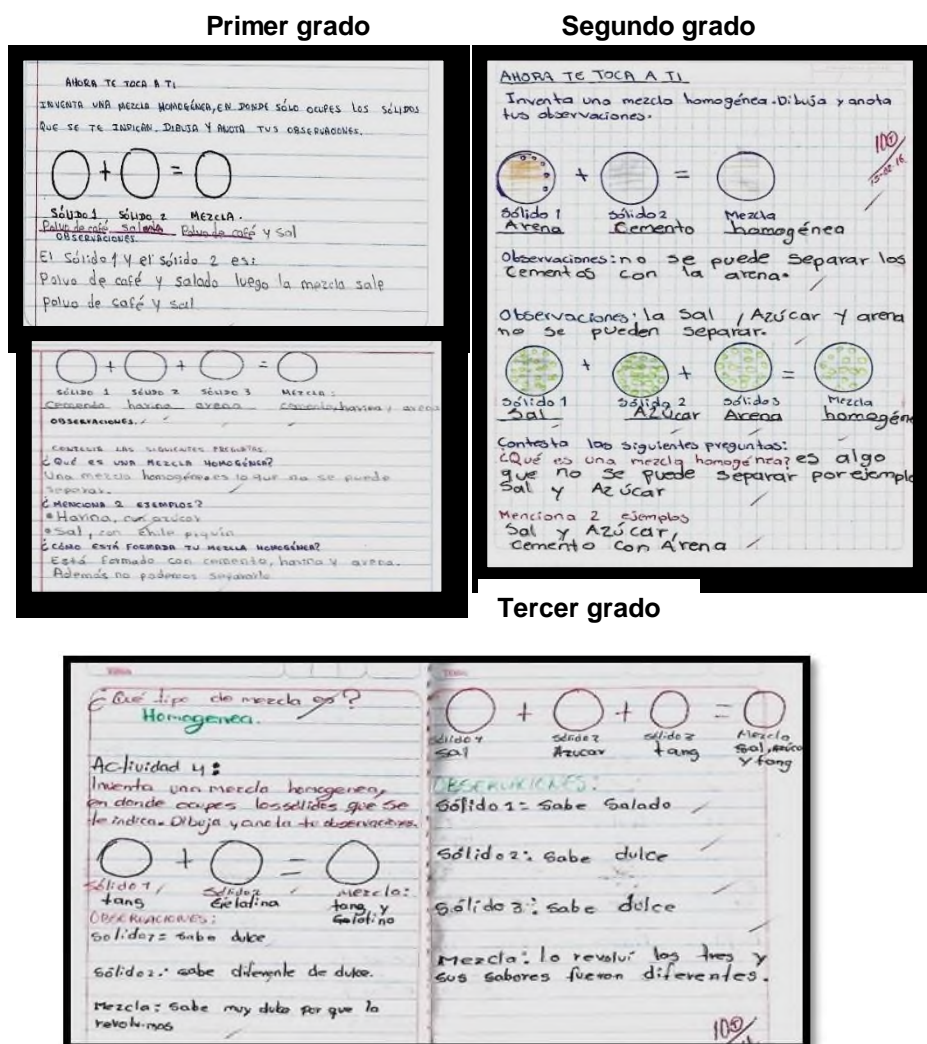 Primer grado
AHORA TE TOCA A TI
INVENTA UNA MEZCLA HOMOGÉNEA, EN DONDE SÓLO OCUPES LOS SÓLIDOS
QUE SE TE INDICAN. DIBUJA Y ANOTA TUS OBSERVACIONES.
+ =
SÓLIDO 1 SÓLIDO 2 MEZCLA.
Polvo de café Salada Polvo de café y Sal
OBSERVACIONES.
El Sólido 1 y el Sólido 2 es:
Polvo de café y salado luego la mezcla sale
polvo de café y sal
+ + =
SÓLIDO 1 SÓLIDO 2 SÓLIDO 3 MEZCLA:
Cemento harina arena cemento, harina y arena
OBSERVACIONES.
CONTESTA LAS SIGUIENTES PREGUNTAS.
¿QUÉ ES UNA MEZCLA HOMOGÉNEA?
Una mezcla homogénea es lo que no se puede
separar.
¿MENCIONA 2 EJEMPLOS?
•Harina, con azúcar
•Sal, con chile piquín
¿CÓMO ESTÁ FORMADA TU MEZCLA HOMOGÉNEA?
Está formado con cemento, harina y arena.
Además no podemos separarlo
Segundo grado
AHORA TE TOCA A TI
Inventa una mezcla homogénea. Dibuja y anota
tus observaciones.
10
+ =
Sólido 1 Sólido 2 Mezcla
Arena Cemento homogénea
Observaciones: no se puede separar los
Cementos con la arena.
Observaciones: la Sal, Azúcar y arena
no se pueden separar.
+ + =
Sólido 1 Sólido 2 Sólido 3 Mezcla
Sal Azúcar Arena homogéne
Contesta las siguientes preguntas:
¿Qué es una mezcla homogénea? es algo
que no se puede separar por ejemplo
Sal y Azúcar
Menciona 2 ejemplos
Sal y Azúcar,
Cemento con Arena
Tercer grado
¿Qué tipo de mezcla es?
Homogenea.
Actividad 4:
Inventa una mezcla homogenea,
en donde ocupes los sólidos que se
te indica. Dibuja y anota tu observaciones.
+ =
Sólido 1 Sólido 2 Mezcla:
tang Gelatina tang y
Gelatina
OBSERVACIONES:
Solido 1= Sabe dulce
Sólido 2: sabe diferente de dulce.
Mezcla: Sabe muy dulce por que lo
revolvimos
+ + =
Sólido 1 Sólido 2 Sólido 3 Mezcla
Sal Azucar tang Sal, Azúca
y tang
OBSERVACIONES:
Sólido 1= Sabe Salado
Sólido 2: Sabe dulce
Sólido 3: Sabe dulce
Mezcla: lo revolví los tres y
sus sabores fueron diferentes.
10